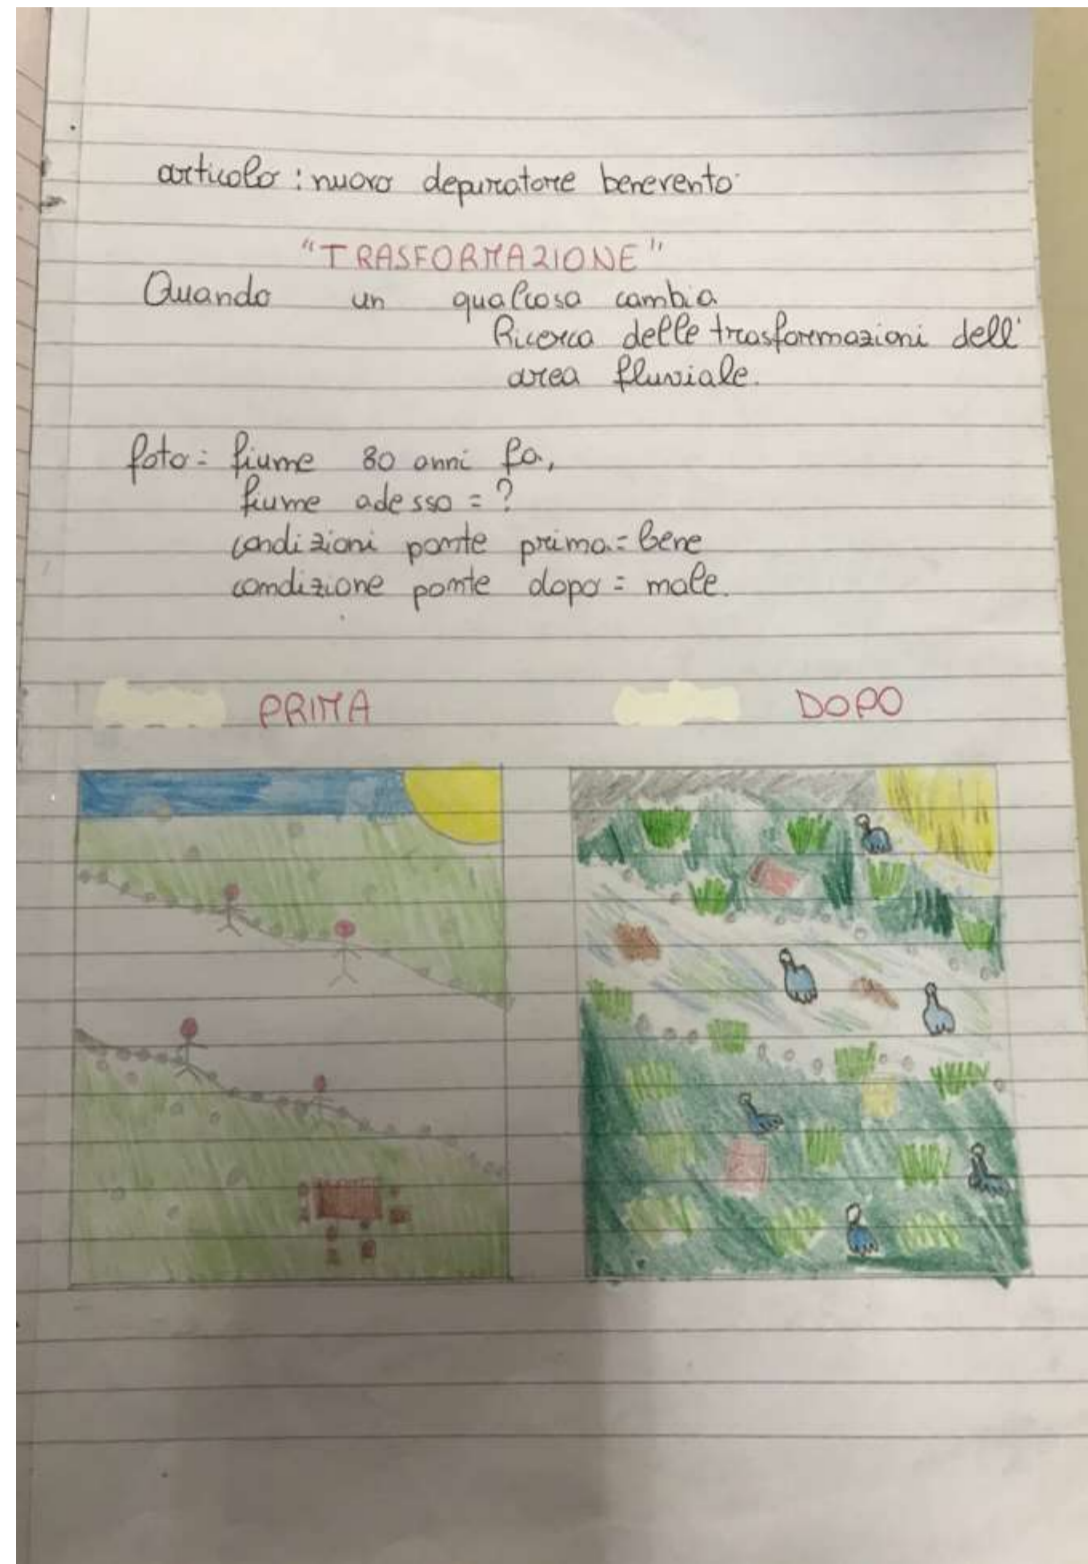 articolo : nuovo depuratore benevento
"TRASFORMAZIONE"
Quando un qualcosa cambia
Ricerca delle trasformazioni dell'
area fluviale.
foto = fiume 80 anni fa,
fiume adesso = ?
condizioni ponte prima = bene
condizione ponte dopo = male.
PRIMA
DOPO